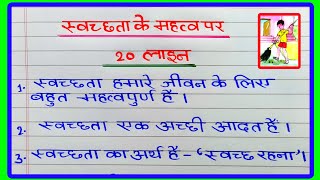 स्वच्छता के महत्व पर
20 लाइन
1. स्वच्छता हमारे जीवन के लिए
बहुत महत्वपूर्ण हैं ।
2. स्वच्छता एक अच्छी आदत हैं ।
3. स्वच्छता का अर्थ हैं - ‘स्वच्छ रहना’।